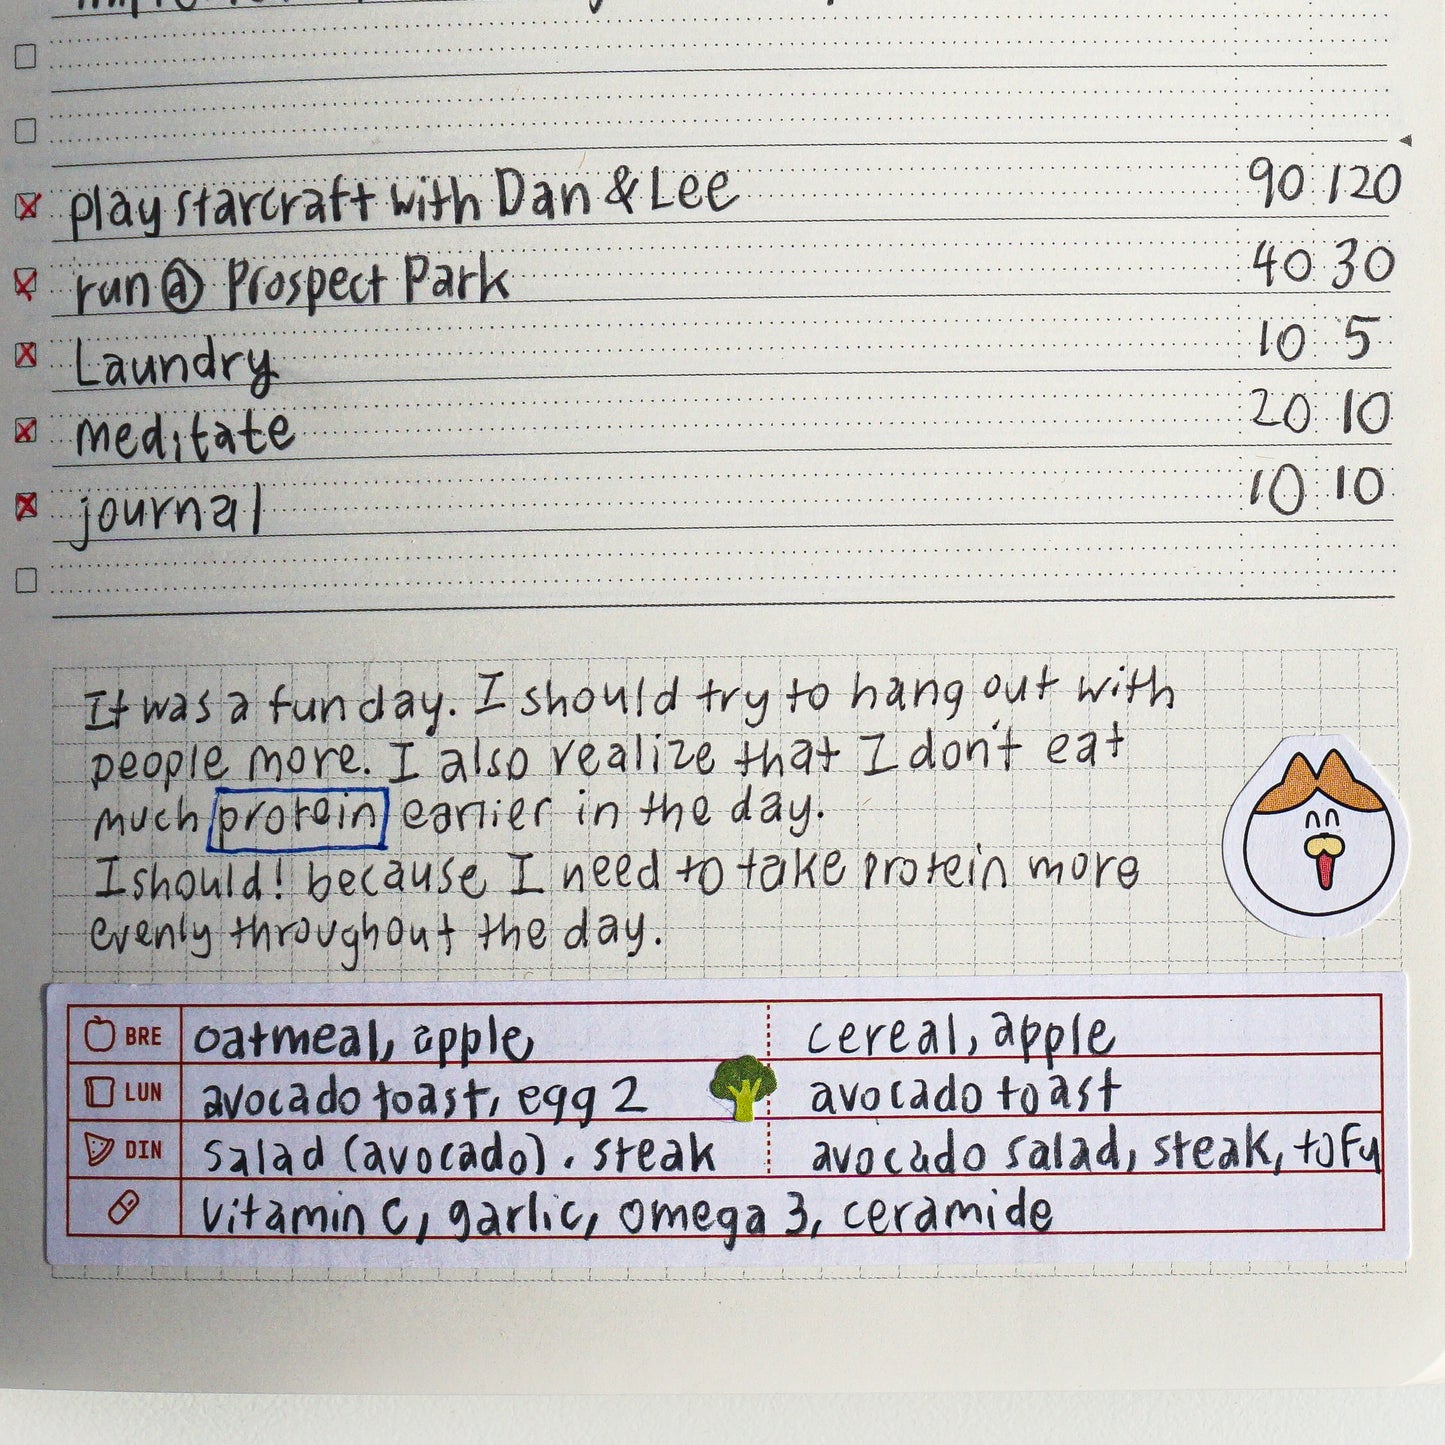 play starcraft with Dan & Lee 90 120
run @ Prospect Park 40 30
Laundry 10 5
meditate 20 10
journal 10 10
It was a fun day. I should try to hang out with
people more. I also realize that I don't eat
much protein earlier in the day.
I should! because I need to take protein more
evenly throughout the day.
BRE oatmeal, apple cereal, apple
LUN avocado toast, egg 2 avocado toast
DIN salad (avocado). steak avocado salad, steak, tofu
vitamin C, garlic, omega 3, ceramide